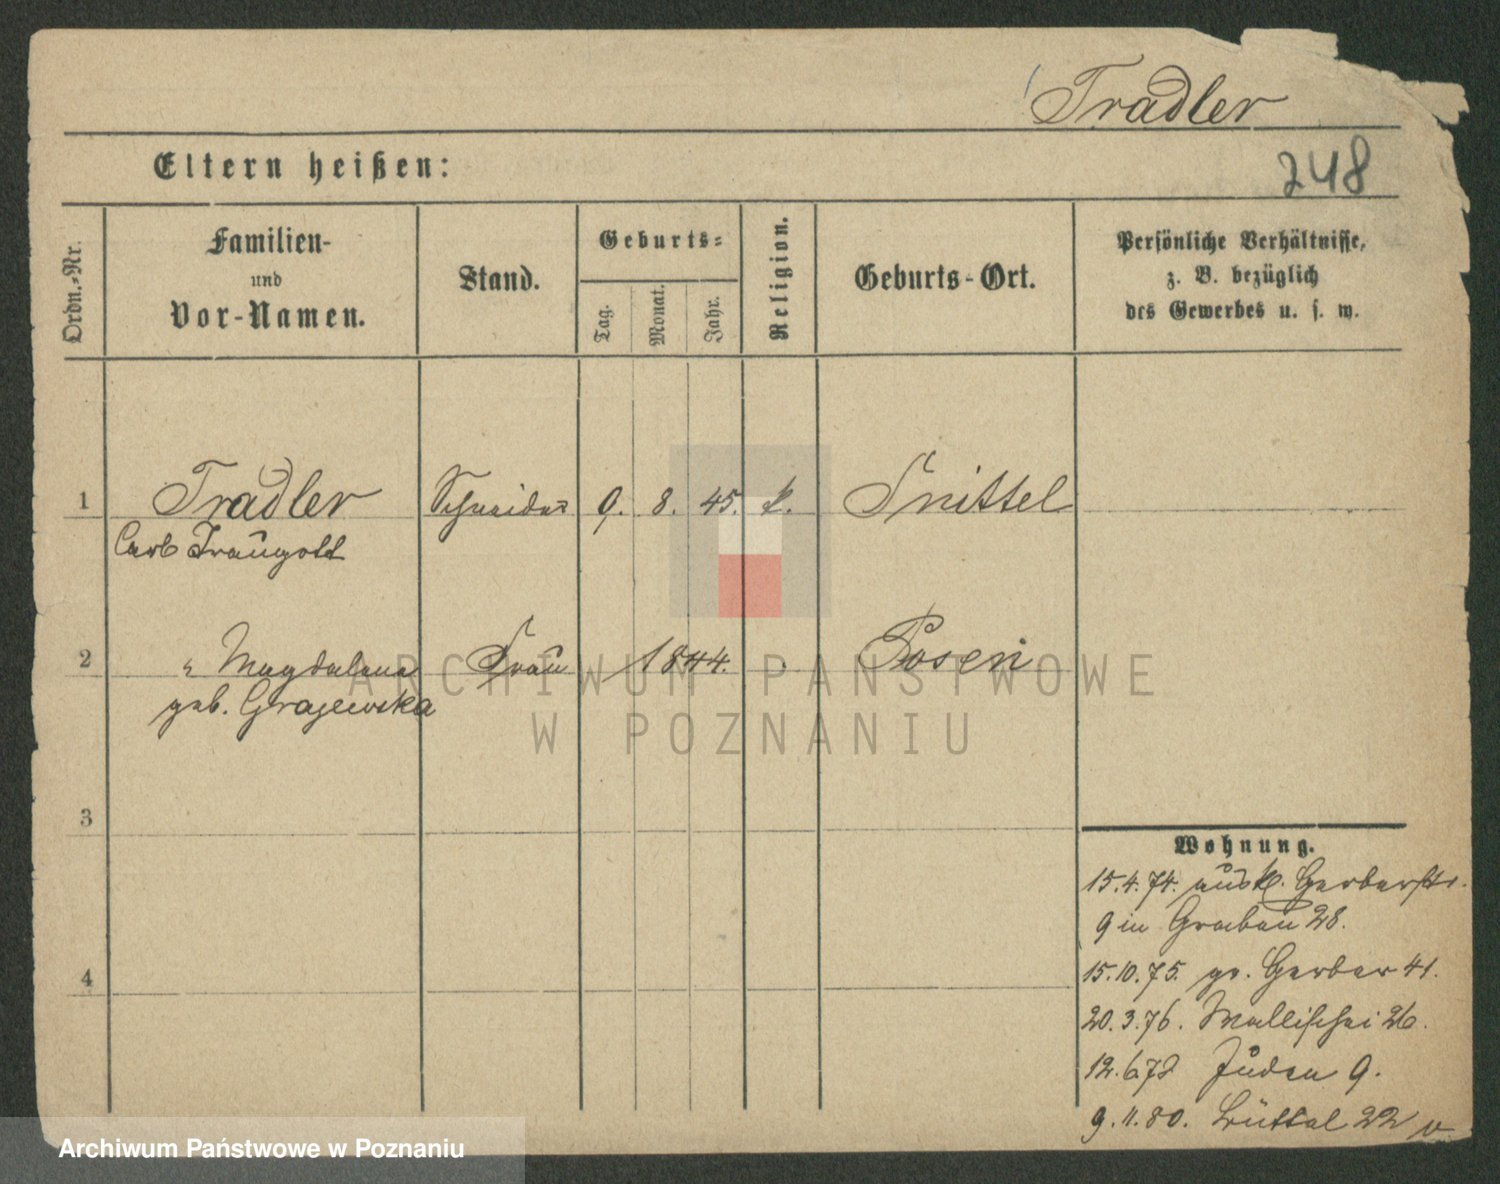 Tradler
248
Eltern heißen:
Ordn.-Nr.
Familien-
und
Vor-Namen.
Stand.
Geburts-
Tag.
Monat.
Jahr.
Religion.
Geburts-Ort.
Persönliche Verhältnisse,
z. B. bezüglich
des Gewerbes u. s. w.
1 Tradler Schneider 9. 8. 45. k.
Carl Traugott
2 " Magdalena Frau 1844. Posen
geb. Grajewska
3
4
Wohnung.
15.4.74. aus kl. Gerberstr.
9 in Graben 28.
15.10.75. gr. Gerber 41.
20.3.76. Wallischei 26.
12.6.78 Juden 9.
9.11.80. Büttel 22
ARCHIWUM PAŃSTWOWE
W POZNANIU
Archiwum Państwowe w Poznaniu